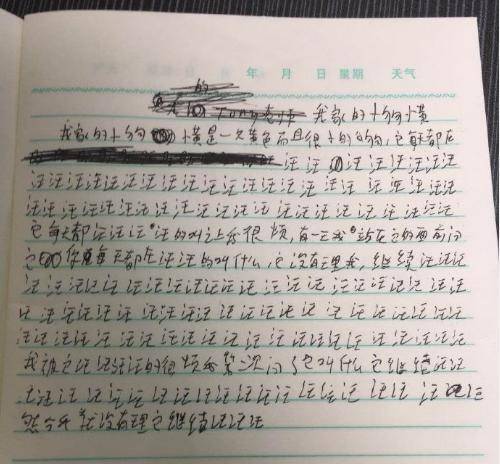 年 月 日 星期 天气
的
我家的小狗小黄
我家的小狗 小黄是一只黄色而且很小的狗,它每天都在
汪汪 汪汪汪汪汪汪
汪汪汪汪汪汪汪汪汪汪汪汪汪汪汪汪 汪汪汪汪汪
汪汪汪汪汪汪汪汪汪汪汪汪汪汪汪汪汪汪汪汪汪汪
它每天都汪汪汪汪的叫让我很烦,有一天我站在它的面前问
它 你每天都在汪汪的叫什么,它没有理我,继续汪汪汪
汪汪汪汪汪汪汪汪汪汪汪汪汪汪汪汪汪汪汪汪汪
汪汪汪汪汪汪汪汪汪汪汪汪汪汪汪汪汪汪汪汪汪
汪汪汪汪汪汪汪汪汪汪汪汪汪汪汪汪汪汪汪汪汪汪
我被它汪汪汪汪的很烦我第二次问了它叫什么它继续汪汪
汪汪汪汪汪汪汪汪汪汪汪汪汪汪汪汪汪汪汪 汪 汪
我没有理它继续汪汪汪